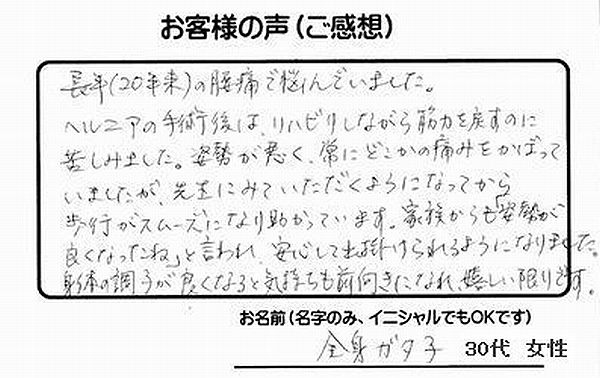 お客様の声(ご感想)
長年(20年来)の腰痛で悩んでいました。
ヘルニアの手術後は、リハビリしながら筋力を戻すのに
苦しみました。姿勢が悪く、常にどこかの痛みをかばって
いましたが、先生にみていただくようになってから
歩行がスムーズになり助かっています。家族からも「姿勢が
良くなったね」と言われ、安心して出掛けられるようになりました。
身体の調子が良くなると気持ちも前向きになれ、嬉しい限りです。
お名前(名字のみ、イニシャルでもOKです)
全身ガタ子 30代 女性